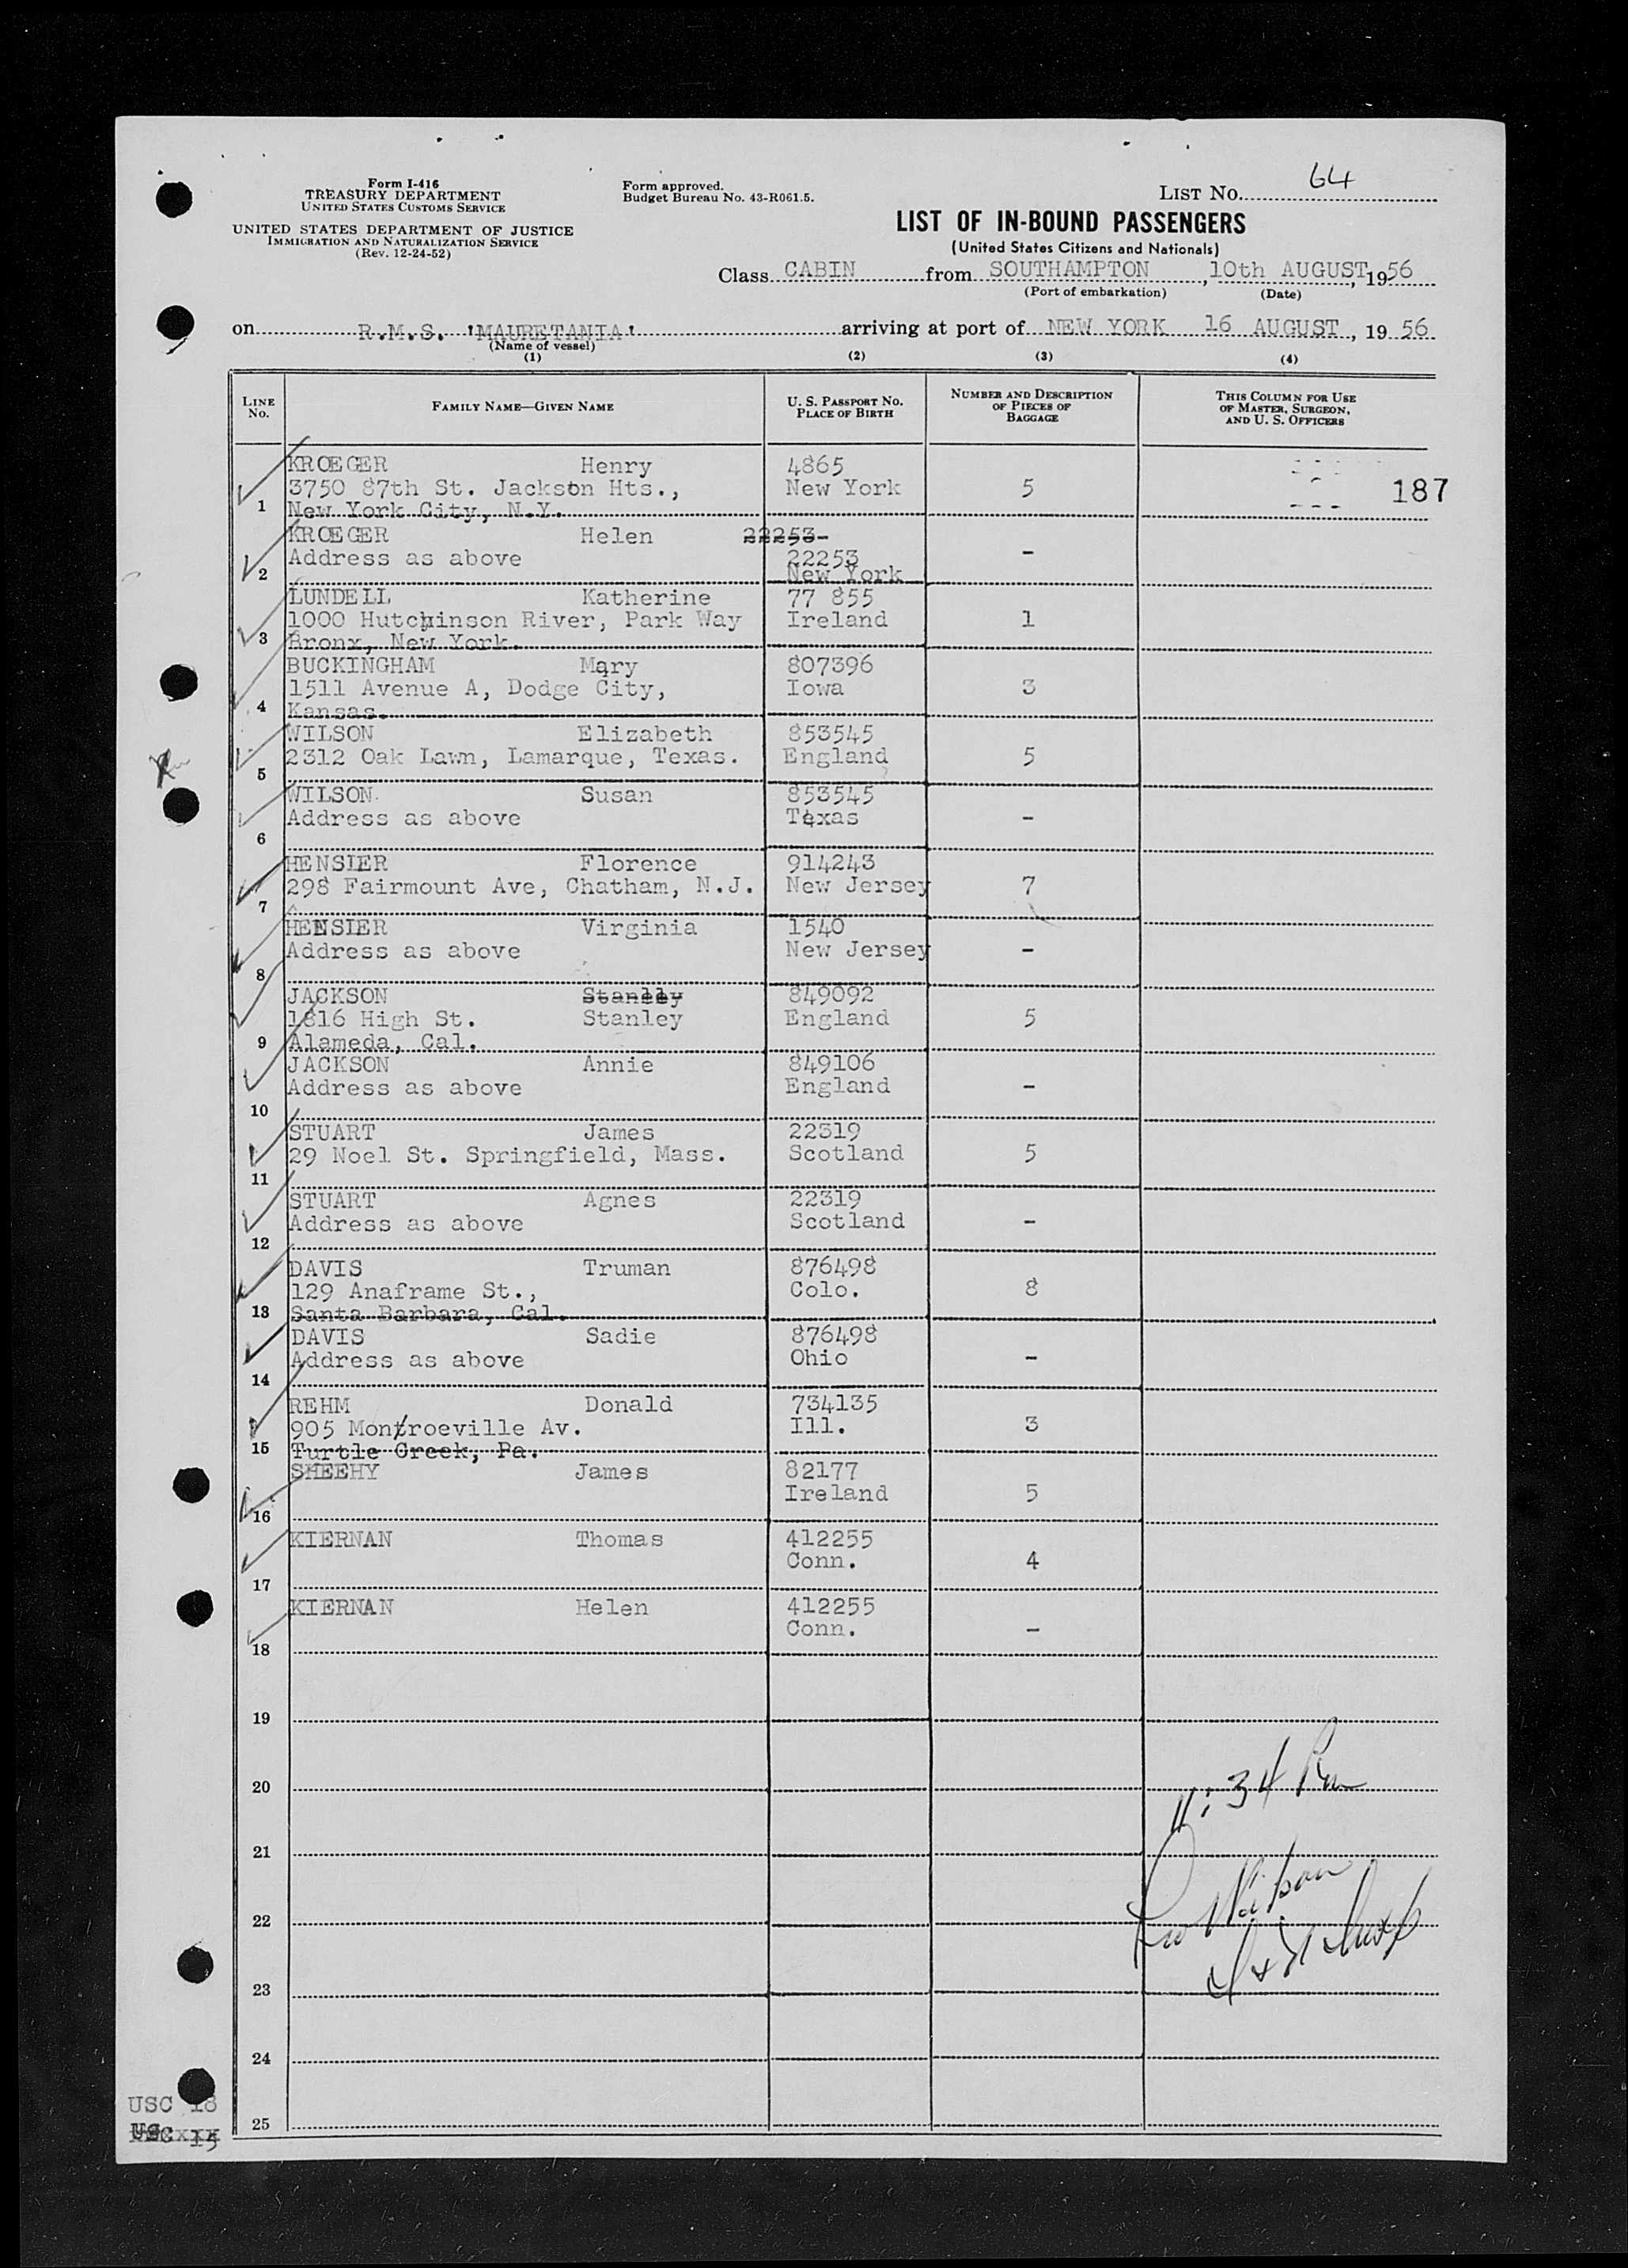 Form I-416
TREASURY DEPARTMENT
UNITED STATES CUSTOMS SERVICE
UNITED STATES DEPARTMENT OF JUSTICE
IMMIGRATION AND NATURALIZATION SERVICE
(Rev. 12-24-52)
Form approved.
Budget Bureau No. 43-R061.5.
LIST NO. 64
LIST OF IN-BOUND PASSENGERS
(United States Citizens and Nationals)
Class CABIN from SOUTHAMPTON, 10th AUGUST, 1956
(Port of embarkation) (Date)
on R.M.S. 'MAURETANIA' arriving at port of NEW YORK 16 AUGUST, 1956
(Name of vessel)
(1) (2) (3) (4)
LINE NO. FAMILY NAME—GIVEN NAME U. S. PASSPORT NO. PLACE OF BIRTH NUMBER AND DESCRIPTION OF PIECES OF BAGGAGE THIS COLUMN FOR USE OF MASTER, SURGEON, AND U. S. OFFICERS
KROEGER Henry 4865
3750 87th St. Jackson Hts., New York 5 187
1 New York City, N.Y.
KROEGER Helen 22253-
Address as above 22253 -
2 New York
LUNDELL Katherine 77 855
1000 Hutchinson River, Park Way Ireland 1
3 Bronx, New York.
BUCKINGHAM Mary 807396
1511 Avenue A, Dodge City, Iowa 3
4 Kansas.
WILSON Elizabeth 853545
2312 Oak Lawn, Lamarque, Texas. England 5
5
WILSON Susan 853545
Address as above Texas -
6
HENSIER Florence 914243
298 Fairmount Ave, Chatham, N.J. New Jersey 7
7
HENSIER Virginia 1540
Address as above New Jersey -
8
JACKSON Stanlly 849092
1816 High St. Stanley England 5
9 Alameda, Cal.
JACKSON Annie 849106
Address as above England -
10
STUART James 22319
29 Noel St. Springfield, Mass. Scotland 5
11
STUART Agnes 22319
Address as above Scotland -
12
DAVIS Truman 876498
129 Anaframe St., Colo. 8
13 Santa Barbara, Cal.
DAVIS Sadie 876498
Address as above Ohio -
14
REHM Donald 734135
905 Montroeville Av. Ill. 3
15 Turtle Creek, Pa.
SHEEHY James 82177
Ireland 5
16
KIERNAN Thomas 412255
Conn. 4
17
KIERNAN Helen 412255
Conn. -
18
19
20
11:34 Pm
21
22
23
24
25
USC 18
USC 15